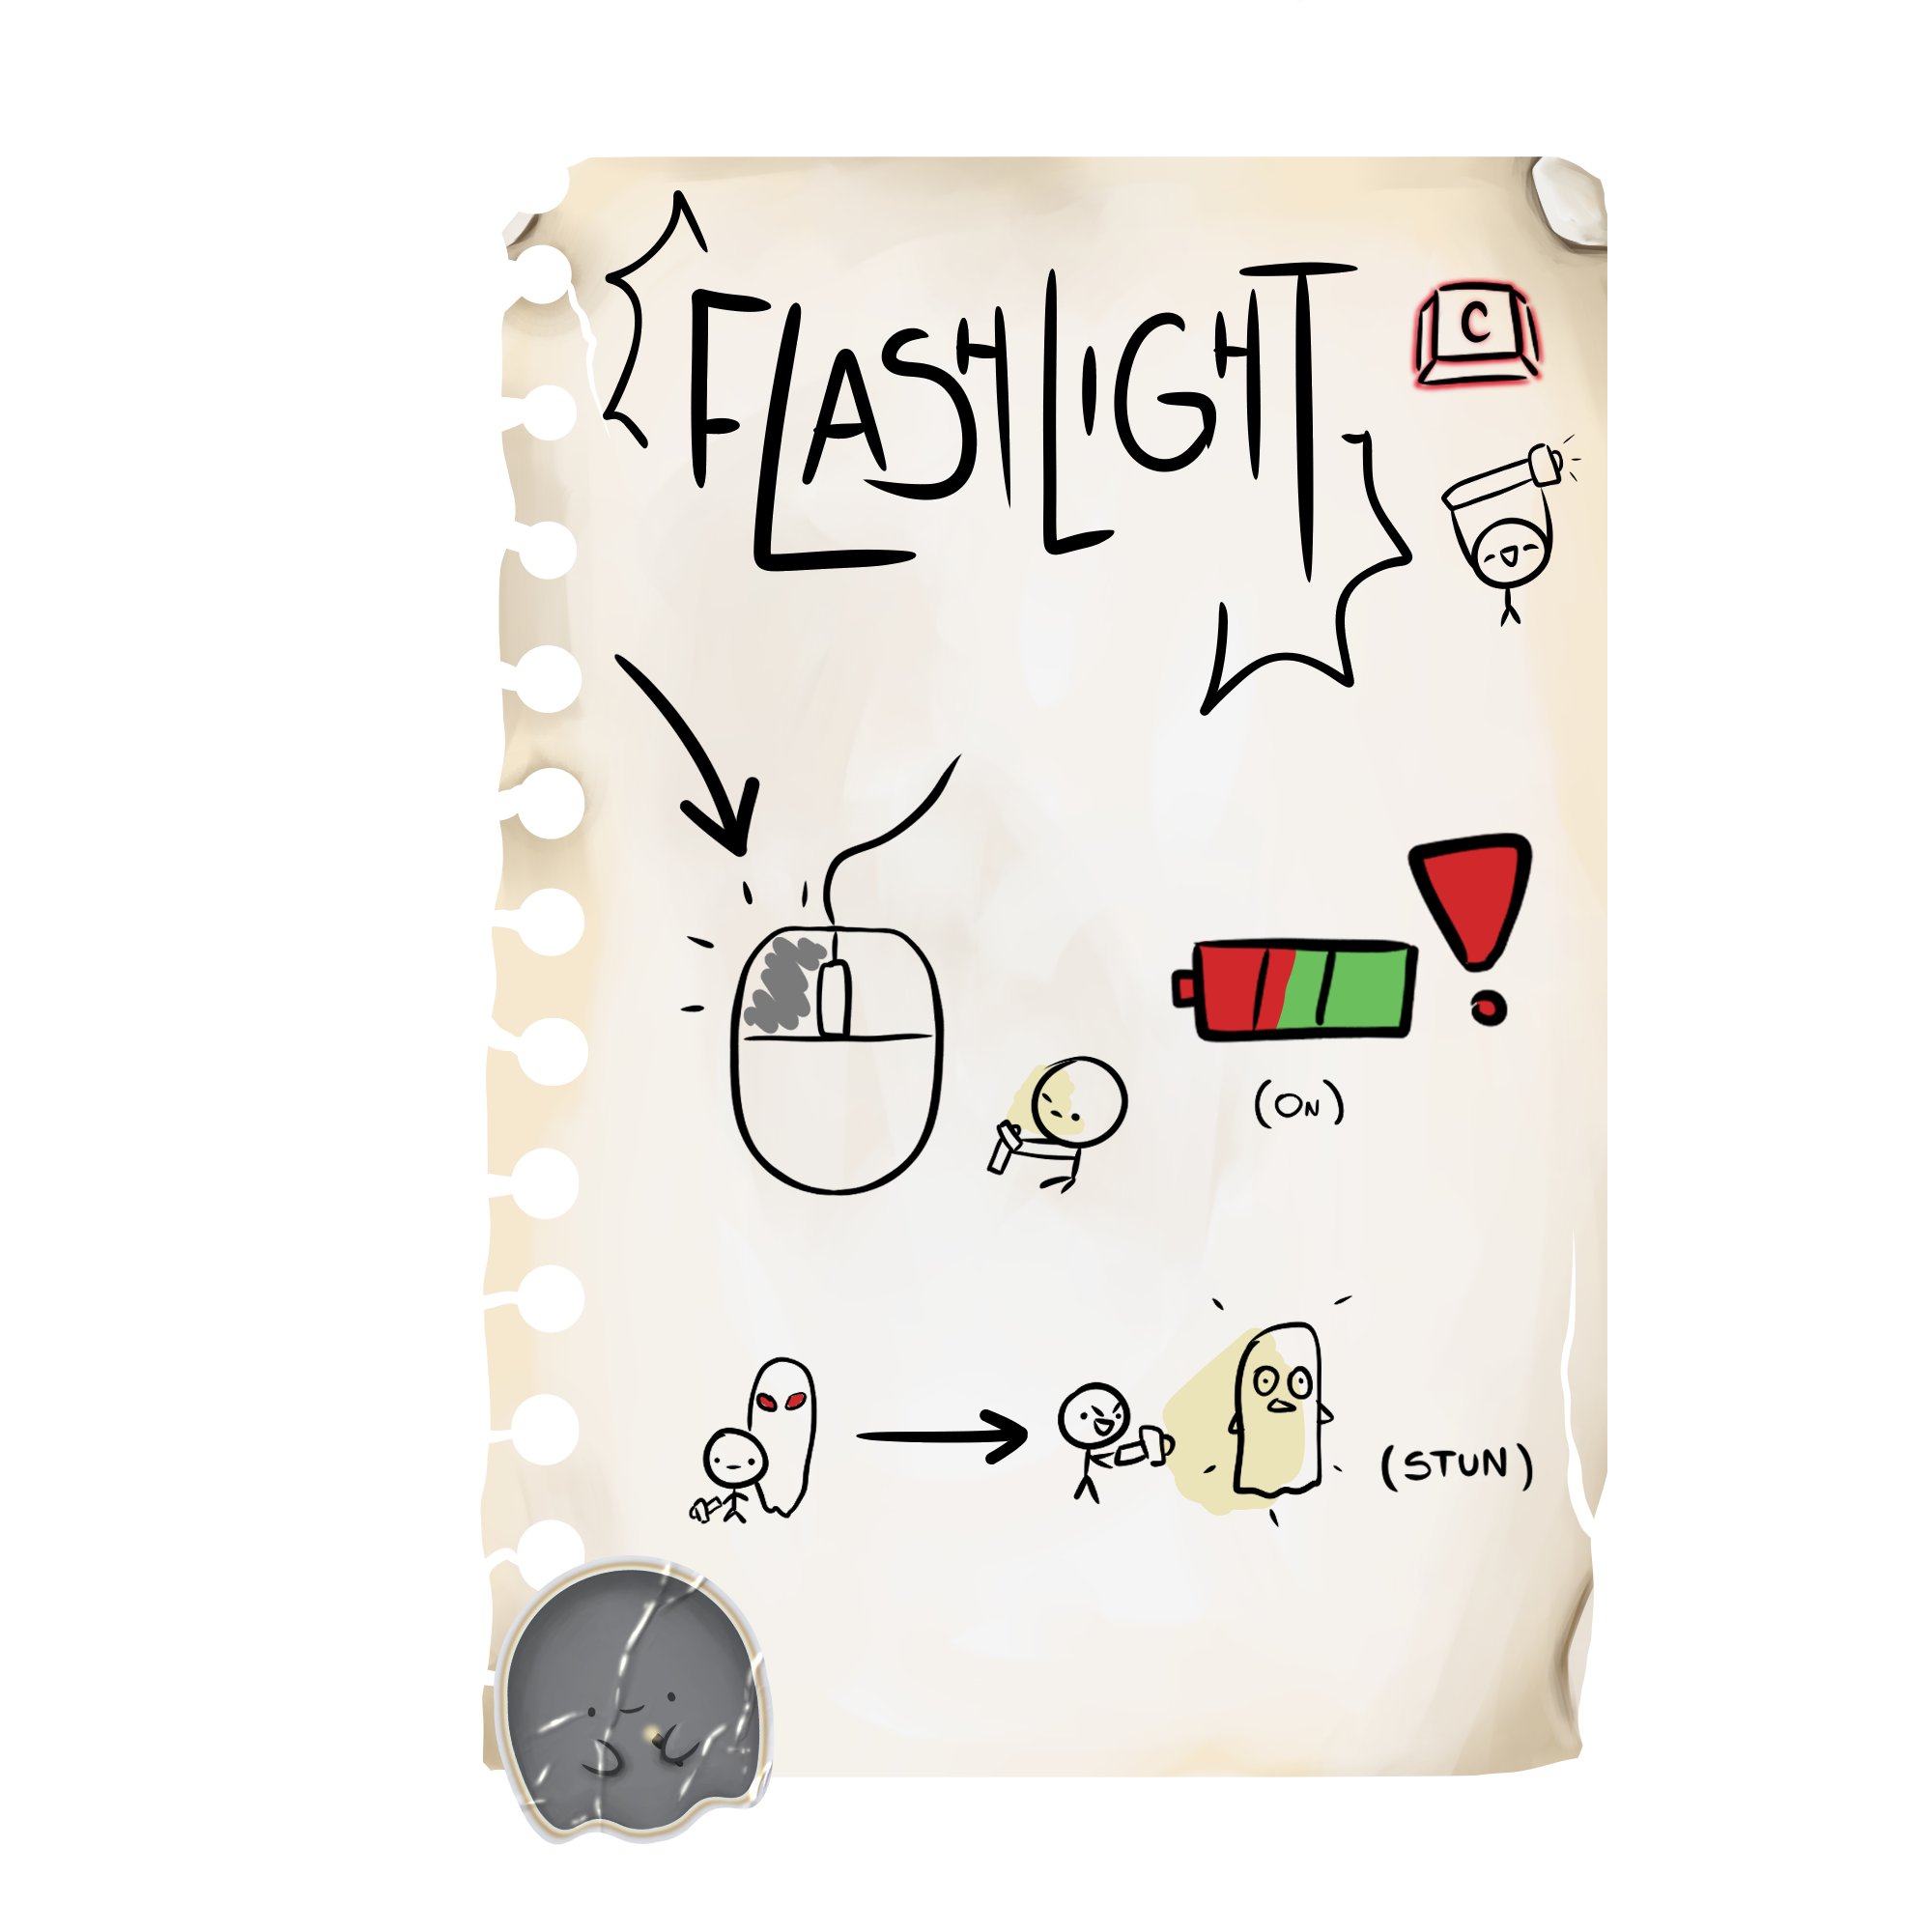 FLASHLIGHT
C
(ON)
(STUN)